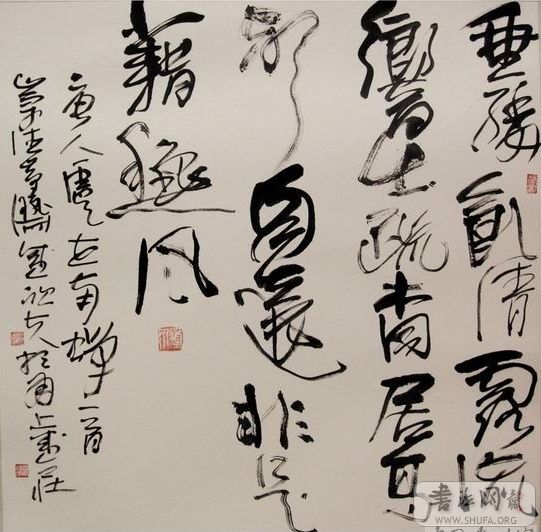 垂緌飲清露流
響出疏桐居高
聲自遠非是
藉秋風
唐人虞世南蟬一首
於甬上
WWW.SHUFA.ORG